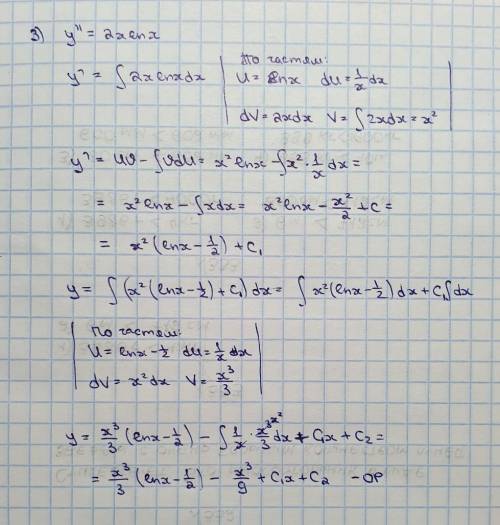 3) y'' = 2x lnx
y' = ∫ 2x lnx dx
По частям:
U = lnx   dU = 1/x dx
dV = 2x dx   V = ∫ 2x dx = x²
y' = UV - ∫ VdU = x² lnx - ∫ x² · 1/x dx =
= x² lnx - ∫ x dx = x² lnx - x²/2 + C =
= x² (lnx - 1/2) + C₁
y = ∫ (x² (lnx - 1/2) + C₁) dx = ∫ x² (lnx - 1/2) dx + C₁ ∫ dx
По частям:
U = lnx - 1/2   dU = 1/x dx
dV = x² dx   V = x³/3
y = x³/3 (lnx - 1/2) - ∫ 1/x · x³/3 x² dx + C₁x + C₂ =
= x³/3 (lnx - 1/2) - x³/9 + C₁x + C₂ - ОР